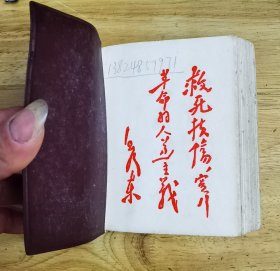 13824857971
救死扶伤，实行
革命的人道主义
毛泽东